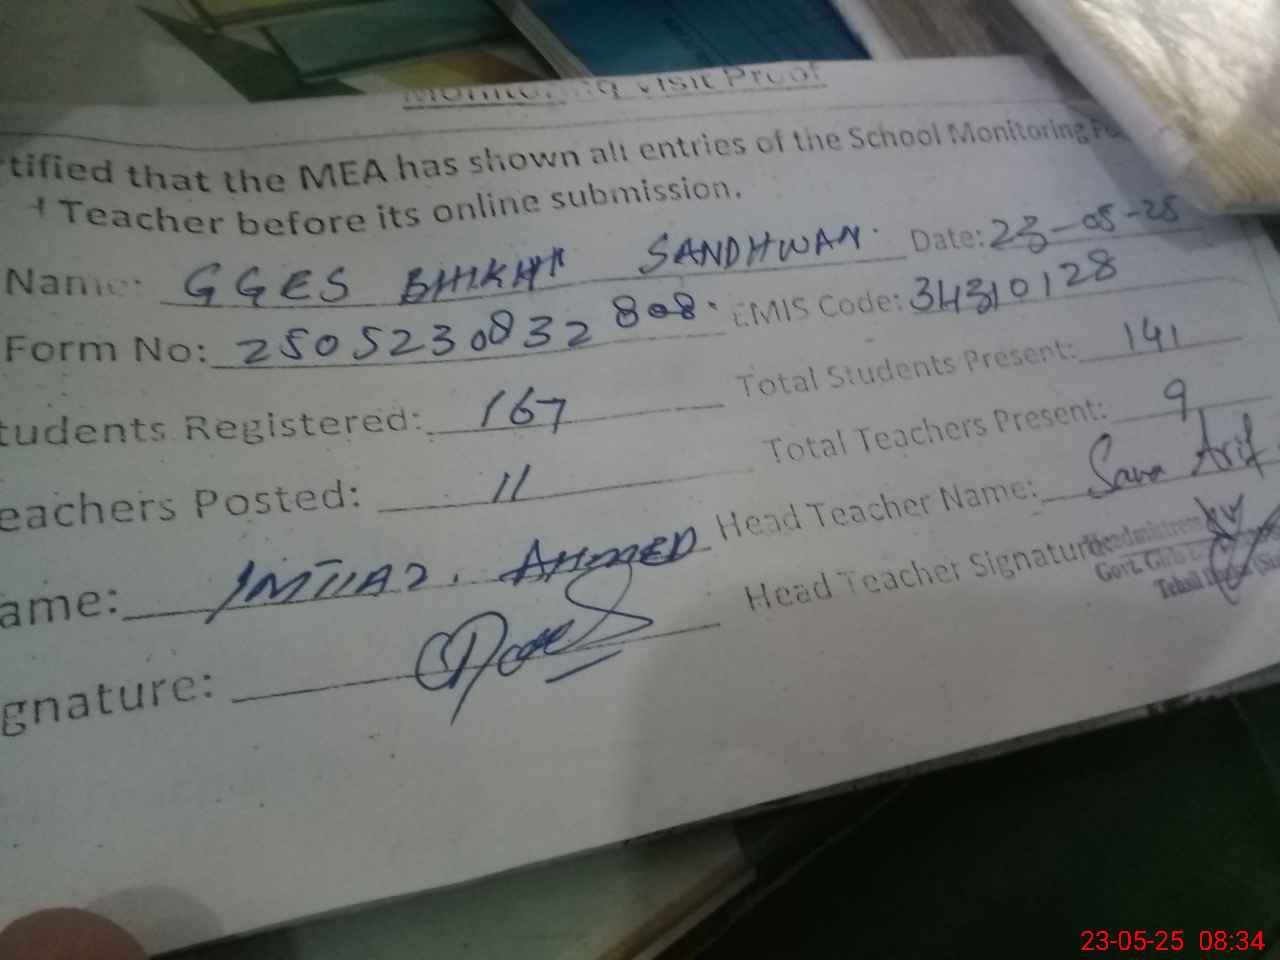 Monitoring Visit Proof
tified that the MEA has shown all entries of the School Monitoring
Teacher before its online submission.
Name: GGES BHIKHI SANDHWAN. Date: 23-05-25
Form No: 2505230832808. EMIS Code: 34310128
tudents Registered: 167 Total Students Present: 141
eachers Posted: 11 Total Teachers Present: 9
ame: IMTIAZ. AHMED Head Teacher Name: Sana Arif
gnature: Head Teacher Signature:
Headmistress
Govt. Girls
Tehsil
23-05-25 08:34